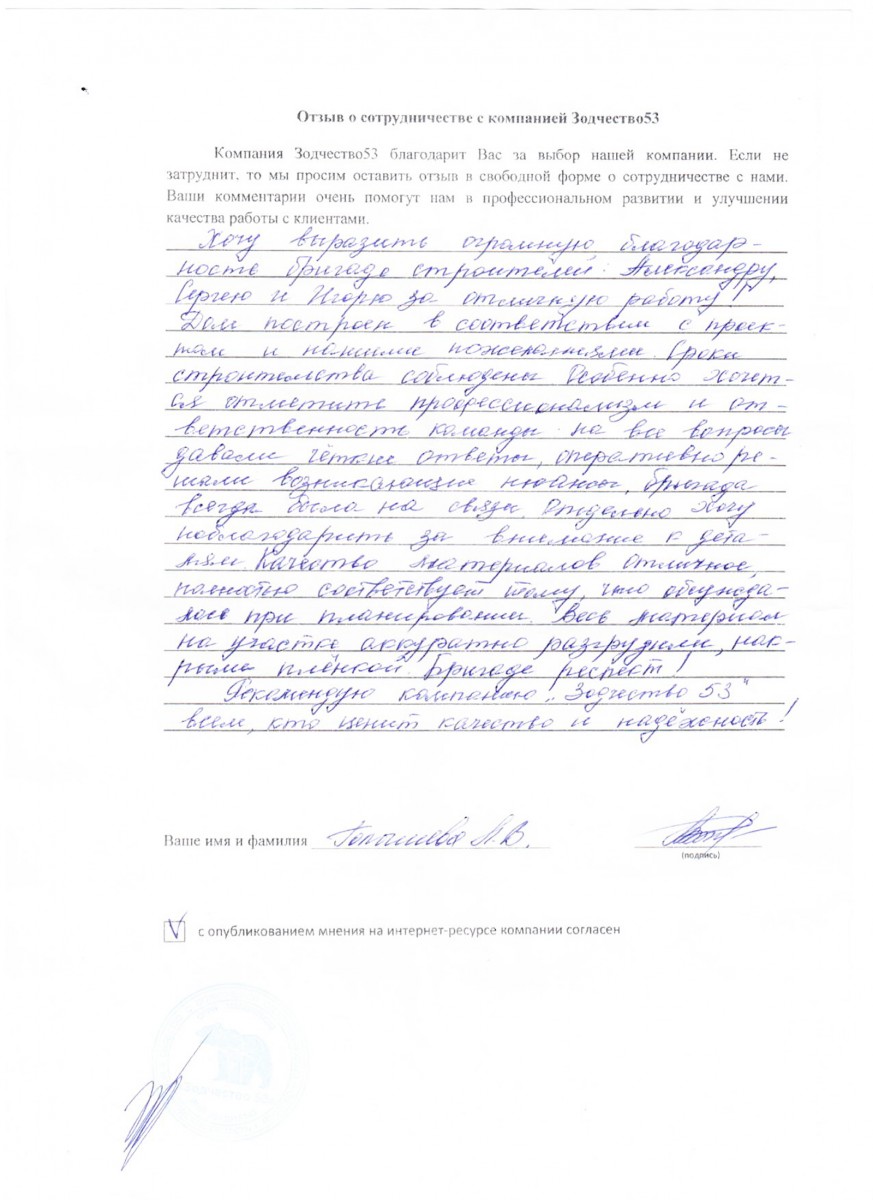 Отзыв о сотрудничестве с компанией Зодчество53
Компания Зодчество53 благодарит Вас за выбор нашей компании. Если не
затруднит, то мы просим оставить отзыв в свободной форме о сотрудничестве с нами.
Ваши комментарии очень помогут нам в профессиональном развитии и улучшении
качества работы с клиентами.
Хочу выразить огромную благодар-
ность бригаде строителей: Александру,
Сергею и Игорю за отличную работу!
Дом построен в соответствии с проек-
том и нашими пожеланиями. Сроки
строительства соблюдены. Особенно хочет-
ся отметить профессионализм и от-
ветственность команды: на все вопросы
давали чёткие ответы, оперативно ре-
шали возникающие нюансы, бригада
всегда была на связи. Отдельно хочу
поблагодарить за внимание к дета-
лям. Качество материалов отличное,
полностью соответствует тому, что обсужда-
лось при планировании. Весь материал
на участке аккуратно разгрузили, нак-
рыли плёнкой. Бригаде респект!
Рекомендую компанию „Зодчество 53"
всем, кто ценит качество и надёжность!
Ваше имя и фамилия А.В.
(подпись)
V с опубликованием мнения на интернет-ресурсе компании согласен